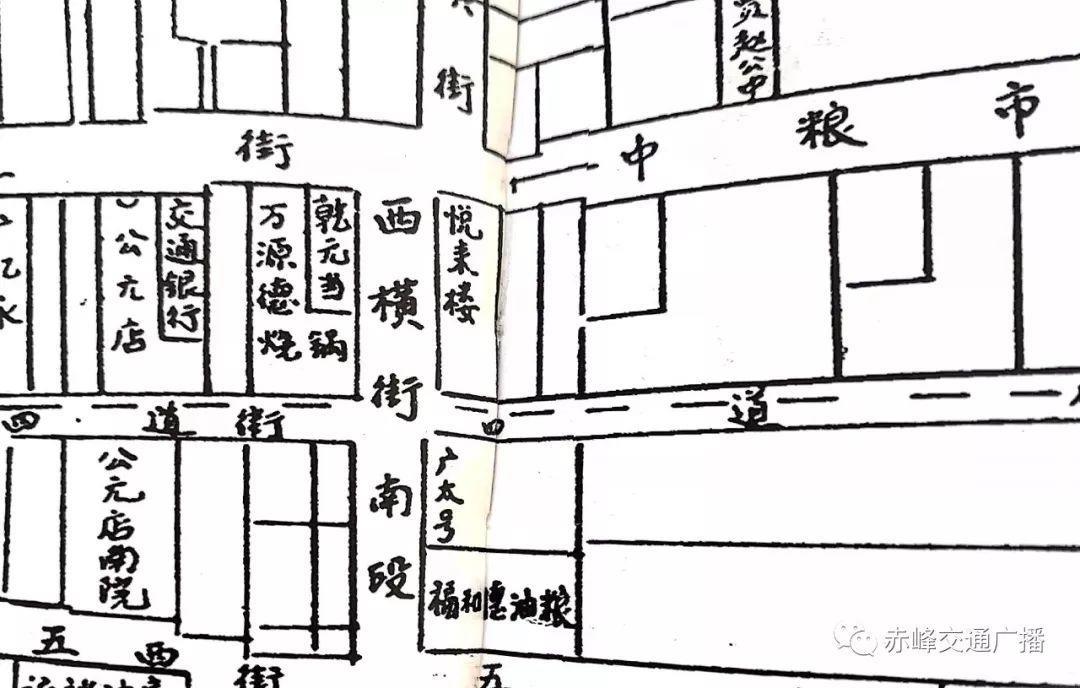 街
赵公中
街
中粮市
公元店
交通银行
万源德烧锅
乾元当
西横街南段
悦来楼
四道街
四道
公元店南院
广太号
福和德油粮
五西街
五
赤峰交通广播